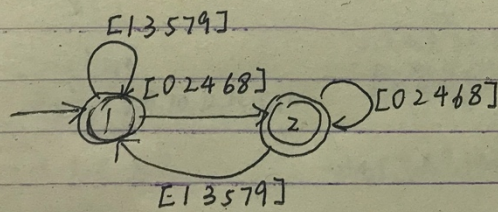 [13579]
[02468]
1
2
[02468]
[13579]